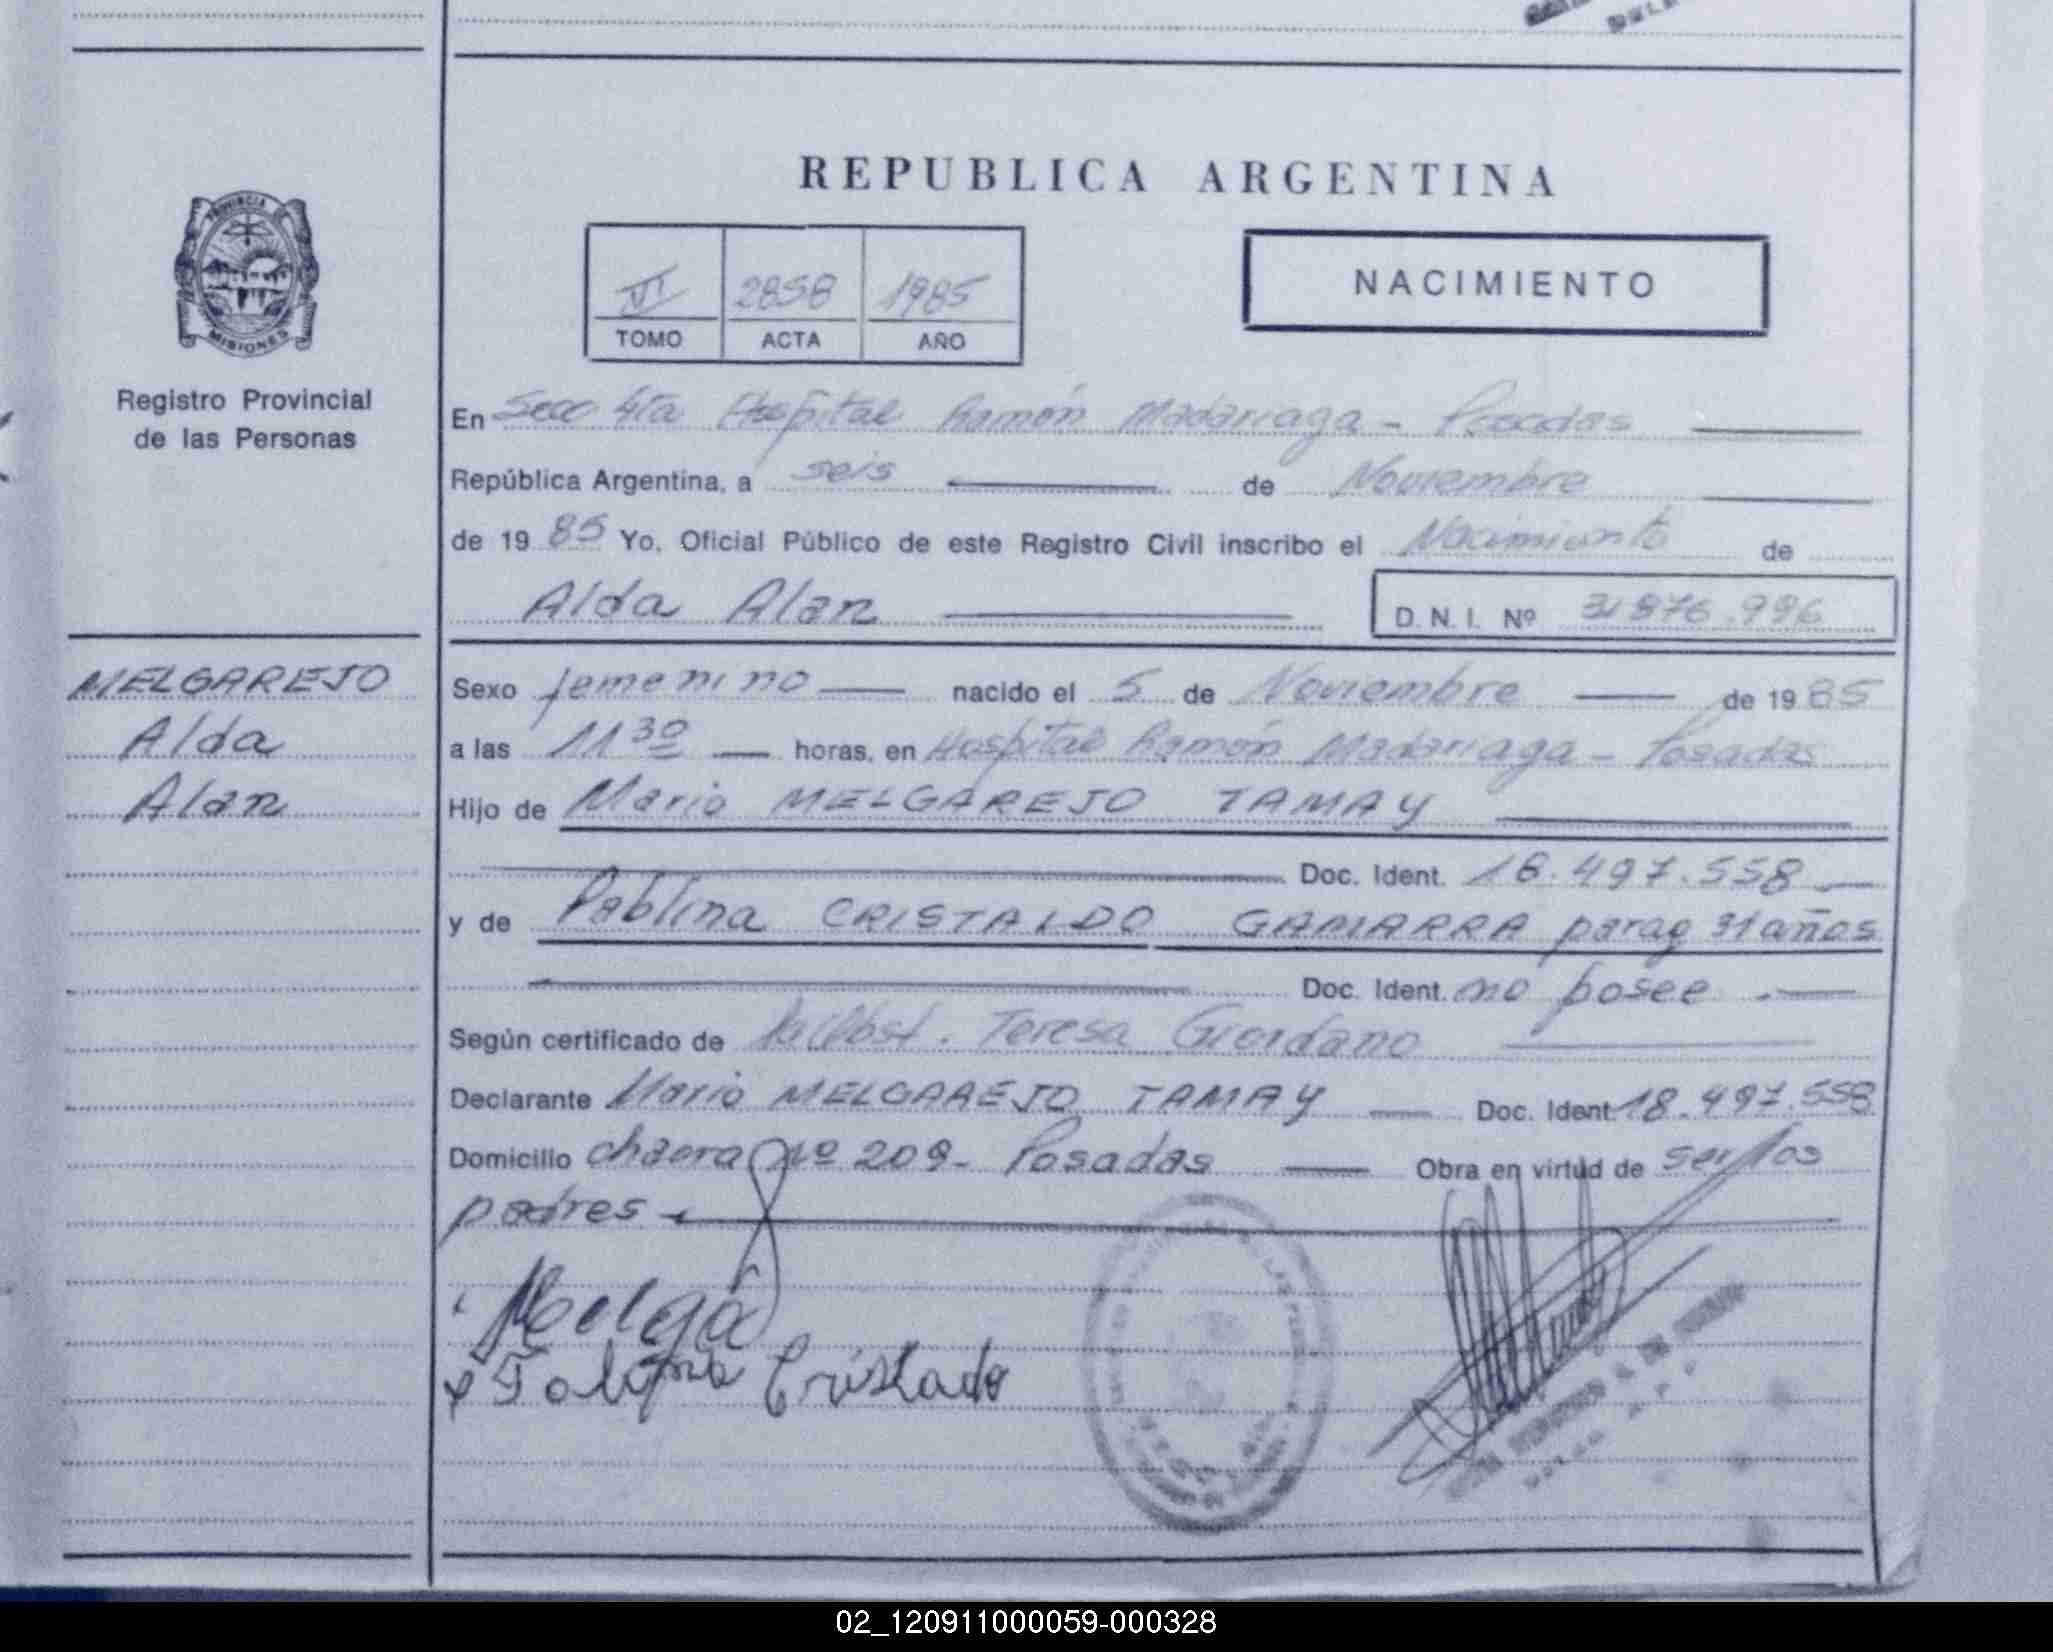 REPUBLICA ARGENTINA
PROVINCIA DE
MISIONES
Registro Provincial
de las Personas
VI 2858 1985
TOMO ACTA AÑO
NACIMIENTO
En Secc 4ta Hospital Ramón Madariaga - Posadas
República Argentina, a seis de Noviembre
de 19 85 Yo, Oficial Público de este Registro Civil inscribo el Nacimiento de
Alda Alan D. N. I. Nº 31876.996
MELGAREJO
Alda
Alan
Sexo femenino nacido el 5 de Noviembre de 19 85
a las 11 30 horas, en Hospital Ramón Madariaga - Posadas
Hijo de Mario MELGAREJO TAMAY
Doc. Ident. 18.497.558
y de Pablina CRISTALDO GAMARRA parag 31 años
Doc. Ident. no posee
Según certificado de Teresa Giordano
Declarante Mario MELGAREJO TAMAY Doc. Ident. 18.497.558
Domicilio chacra Nº 209 - Posadas Obra en virtud de ser los
padres
Melga
Cristado
02_120911000059-000328